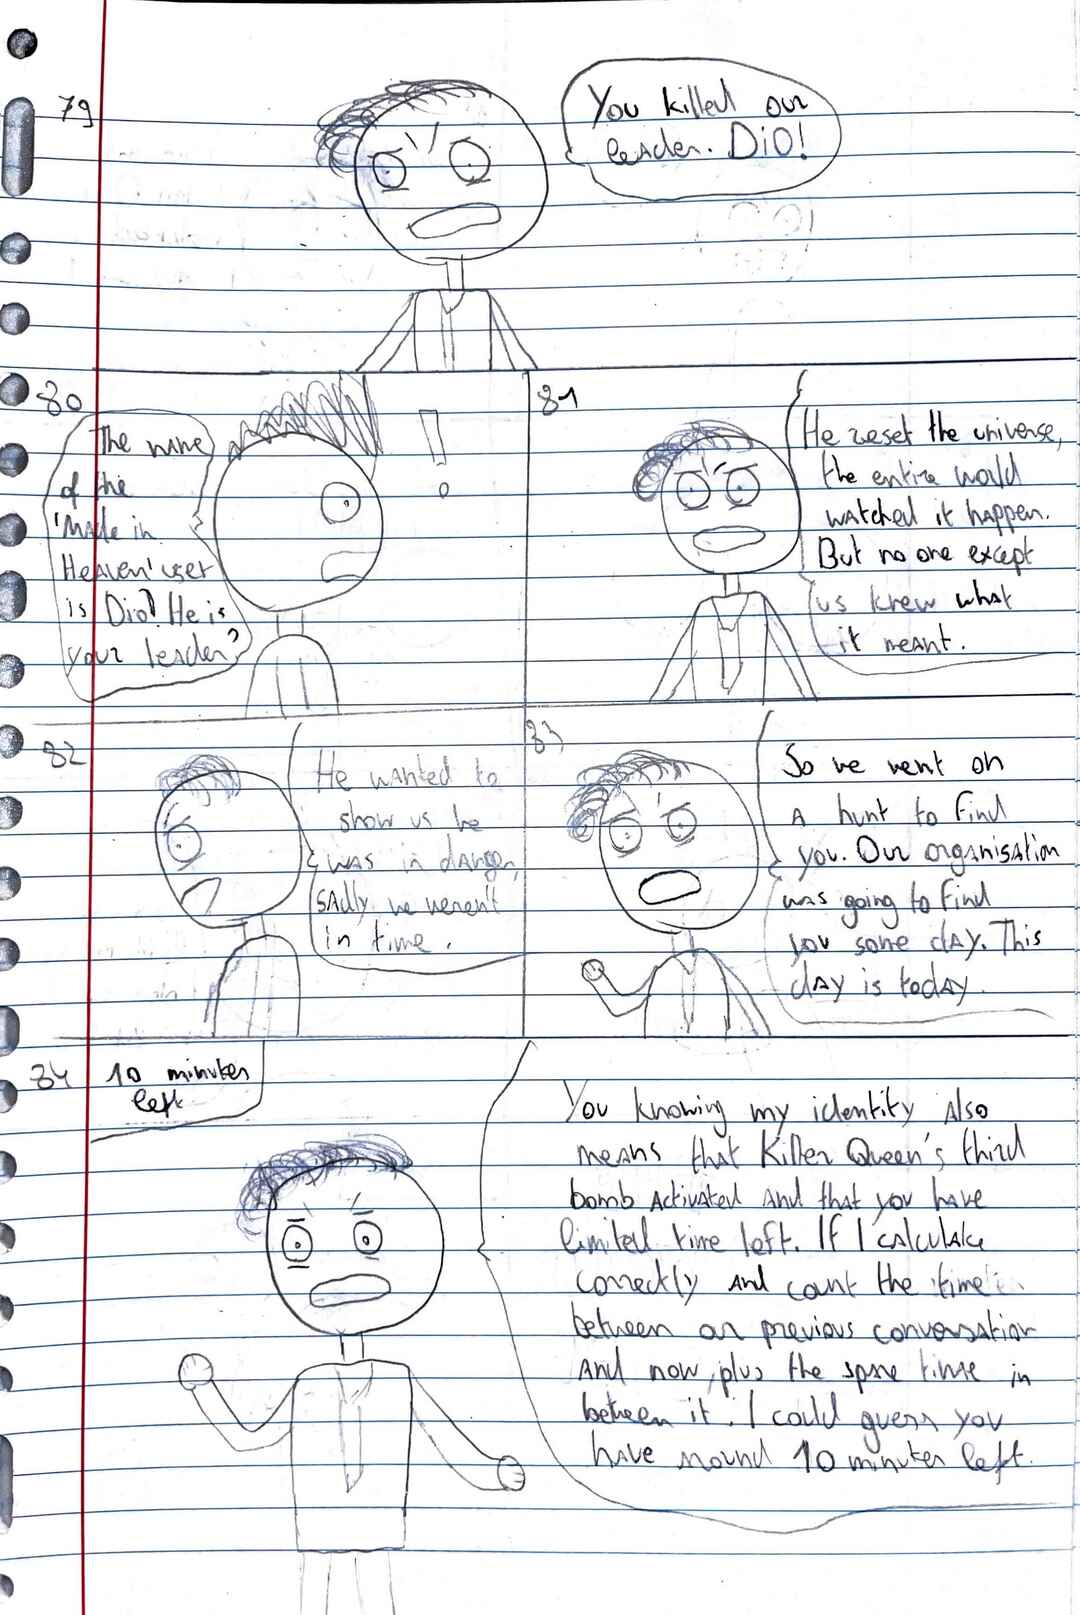 79
You killed our
leader. DiO!
80
The name
of the
'Made in
Heaven' user
is Dio? He is
your leader?
!
81
He reset the universe,
the entire world
watched it happen.
But no one except
us knew what
it meant.
82
He wanted to
show us he
was in danger,
sadly we weren't
in time.
83
So we went on
a hunt to find
you. Our organisation
was going to find
you some day. This
day is today.
84
10 minutes
left
You knowing my identity also
means that Killer Queen's third
bomb activated and that you have
limited time left. If I calculate
correctly and count the time
between our previous conversation
and now, plus the spare time in
between it. I could guess you
have around 10 minutes left.